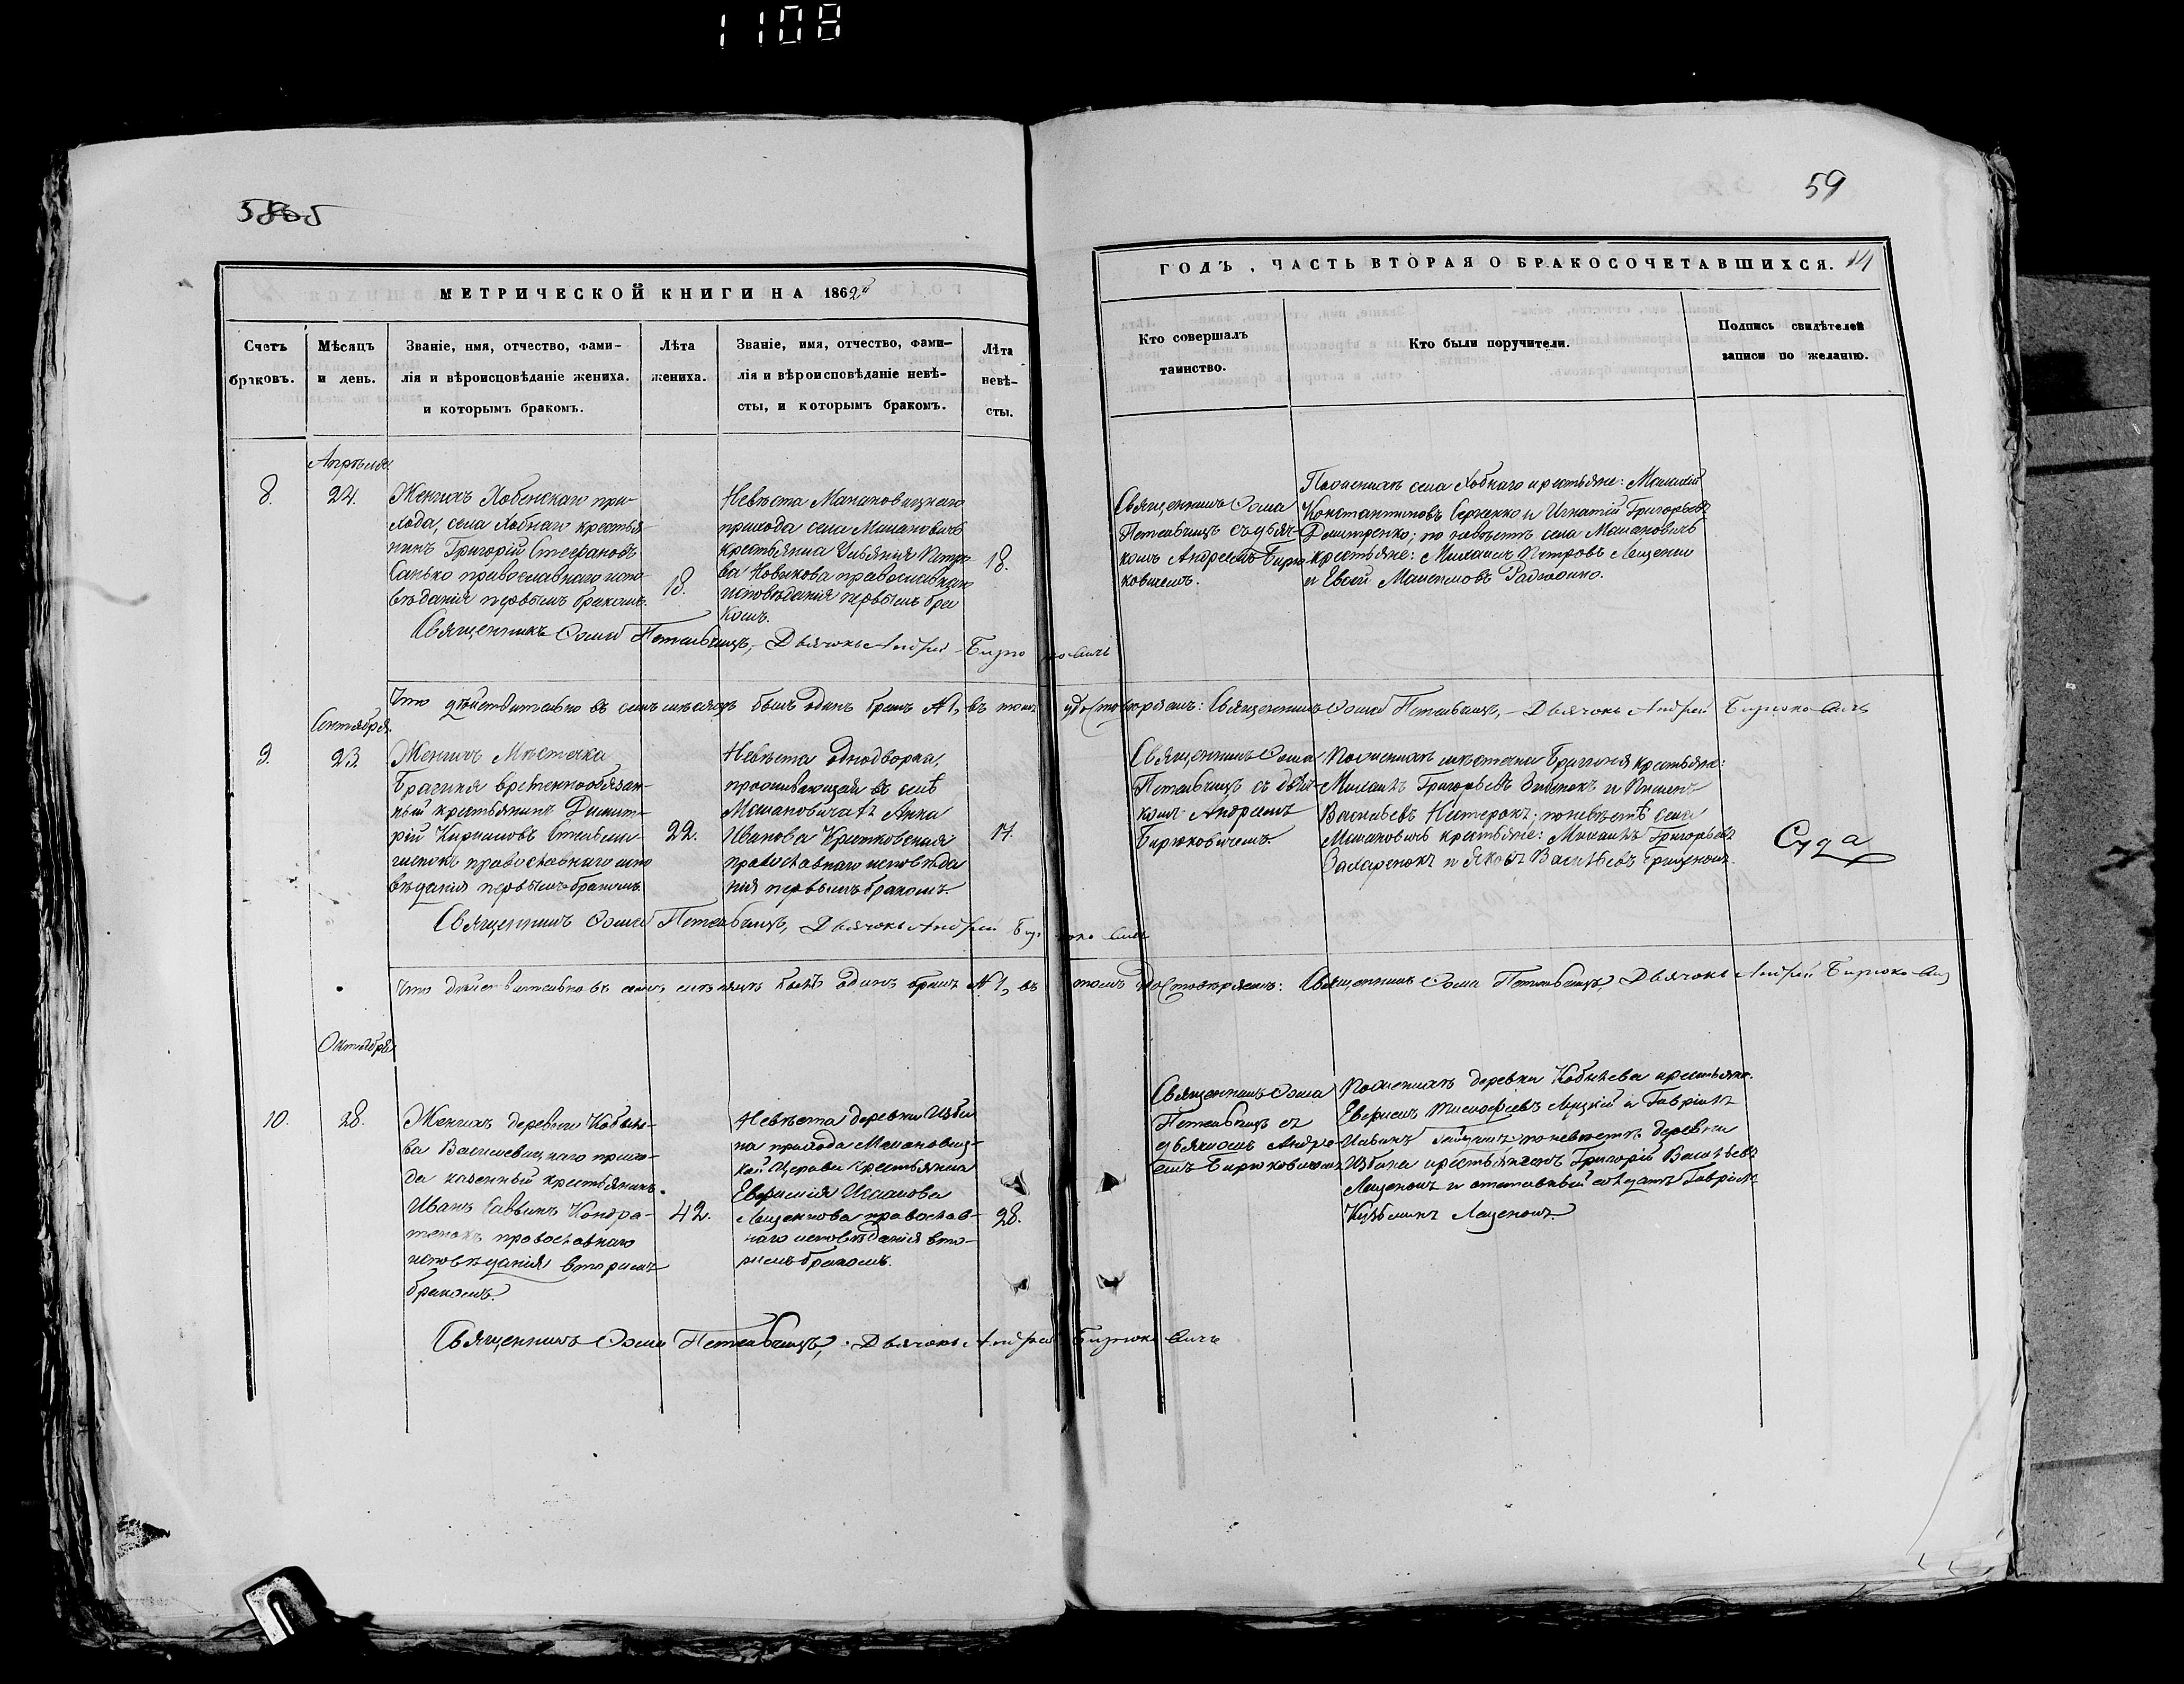 1108
59
МЕТРИЧЕСКОЙ КНИГИ НА 1862й
ГОДЪ, ЧАСТЬ ВТОРАЯ О БРАКОСОЧЕТАВШИХСЯ.
Счетъ
браковъ.
Мѣсяцъ
и день.
Званіе, имя, отчество, фами-
лія и вѣроисповѣданіе жениха.
и которымъ бракомъ.
Лѣта
жениха.
Званіе, имя, отчество, фами-
лія и вѣроисповѣданіе невѣ-
сты, и которымъ бракомъ.
Лѣта
невѣ-
сты.
Кто совершалъ
таинство.
Кто были поручители.
Подпись свидѣтелей
записи по желанію.
8.
Апрѣля.
24.
Женихъ Хобенскаго при-
хода, села Хобнаго крестья-
нинъ Григорій Стефановъ
Санько православнаго испо-
вѣданія первымъ бракомъ.
18.
Невѣста Мананов
прихода села Манановичъ
крестьянка Ульянія Петро-
ва Новикова православнаго
исповѣданія первымъ бра
комъ.
18.
Священникъ
Петельчицъ съ дьяч-
комъ Андреемъ Бирю-
ковичемъ.
села Хобнаго крестьяне:
Константиновъ Сергенко и Игнатій Григорьевъ
Димитренко; по невѣстѣ села Манановичъ
крестьяне: Михаилъ Петровъ Лещенко
и Максимовъ
Священникъ Петельчицъ, Дьячокъ Андрей Бирюковичъ
Что дѣйствительно въ семъ мѣсяцѣ былъ одинъ бракъ №1, въ томъ удостовѣряемъ: Священникъ Петельчицъ, Дьячокъ Андрей Бирюковичъ
9.
Сентября.
23.
Женихъ Мѣстечка
Брагиня временнообязан-
ный крестьянинъ Димит-
рій
православнаго испо
вѣданія первымъ бракомъ.
22.
Невѣста однодворка,
проживающая въ селѣ
Манановичахъ Анна
Иванова
православнаго исповѣда
нія первымъ бракомъ.
17.
Священникъ
Петельчицъ съ дьяч-
комъ Андреемъ
Бирюковичемъ.
мѣстечка Брагиня крестьяне:
Михаилъ Григорьевъ и
Васильевъ Нестерокъ; по невѣстѣ села
Манановичъ крестьяне: Михаилъ Григорьевъ
и Яковъ Васильевъ
Суда
Священникъ Петельчицъ, Дьячокъ Андрей Бирюковичъ
Что дѣйствительно въ семъ мѣсяцѣ былъ одинъ бракъ №1, въ томъ удостовѣряемъ: Священникъ Петельчицъ, Дьячокъ Андрей Бирюковичъ
10.
Октября
28.
Женихъ деревни
ва Василевицкаго прихо-
да казенный крестьянинъ
Иванъ Саввинъ Кондра-
тенокъ православнаго
исповѣданія вторымъ
бракомъ.
42.
Невѣста деревни Изби
на прихода Манановиц-
кой Церкви крестьянка
Евфимія
Лещенкова православ-
наго исповѣданія вто-
рымъ бракомъ.
28.
Священникъ
Петельчицъ съ
дьячкомъ Андре-
емъ Бирюковичемъ
деревни крестьяне
Луцкій и Гавріилъ
по невѣстѣ деревни
Избина крестьянинъ Григорій Васильевъ
Лещенокъ и отставный солдатъ Гавріилъ
Кузьминъ Лещенокъ.
Священникъ Петельчицъ, Дьячокъ Андрей Бирюковичъ